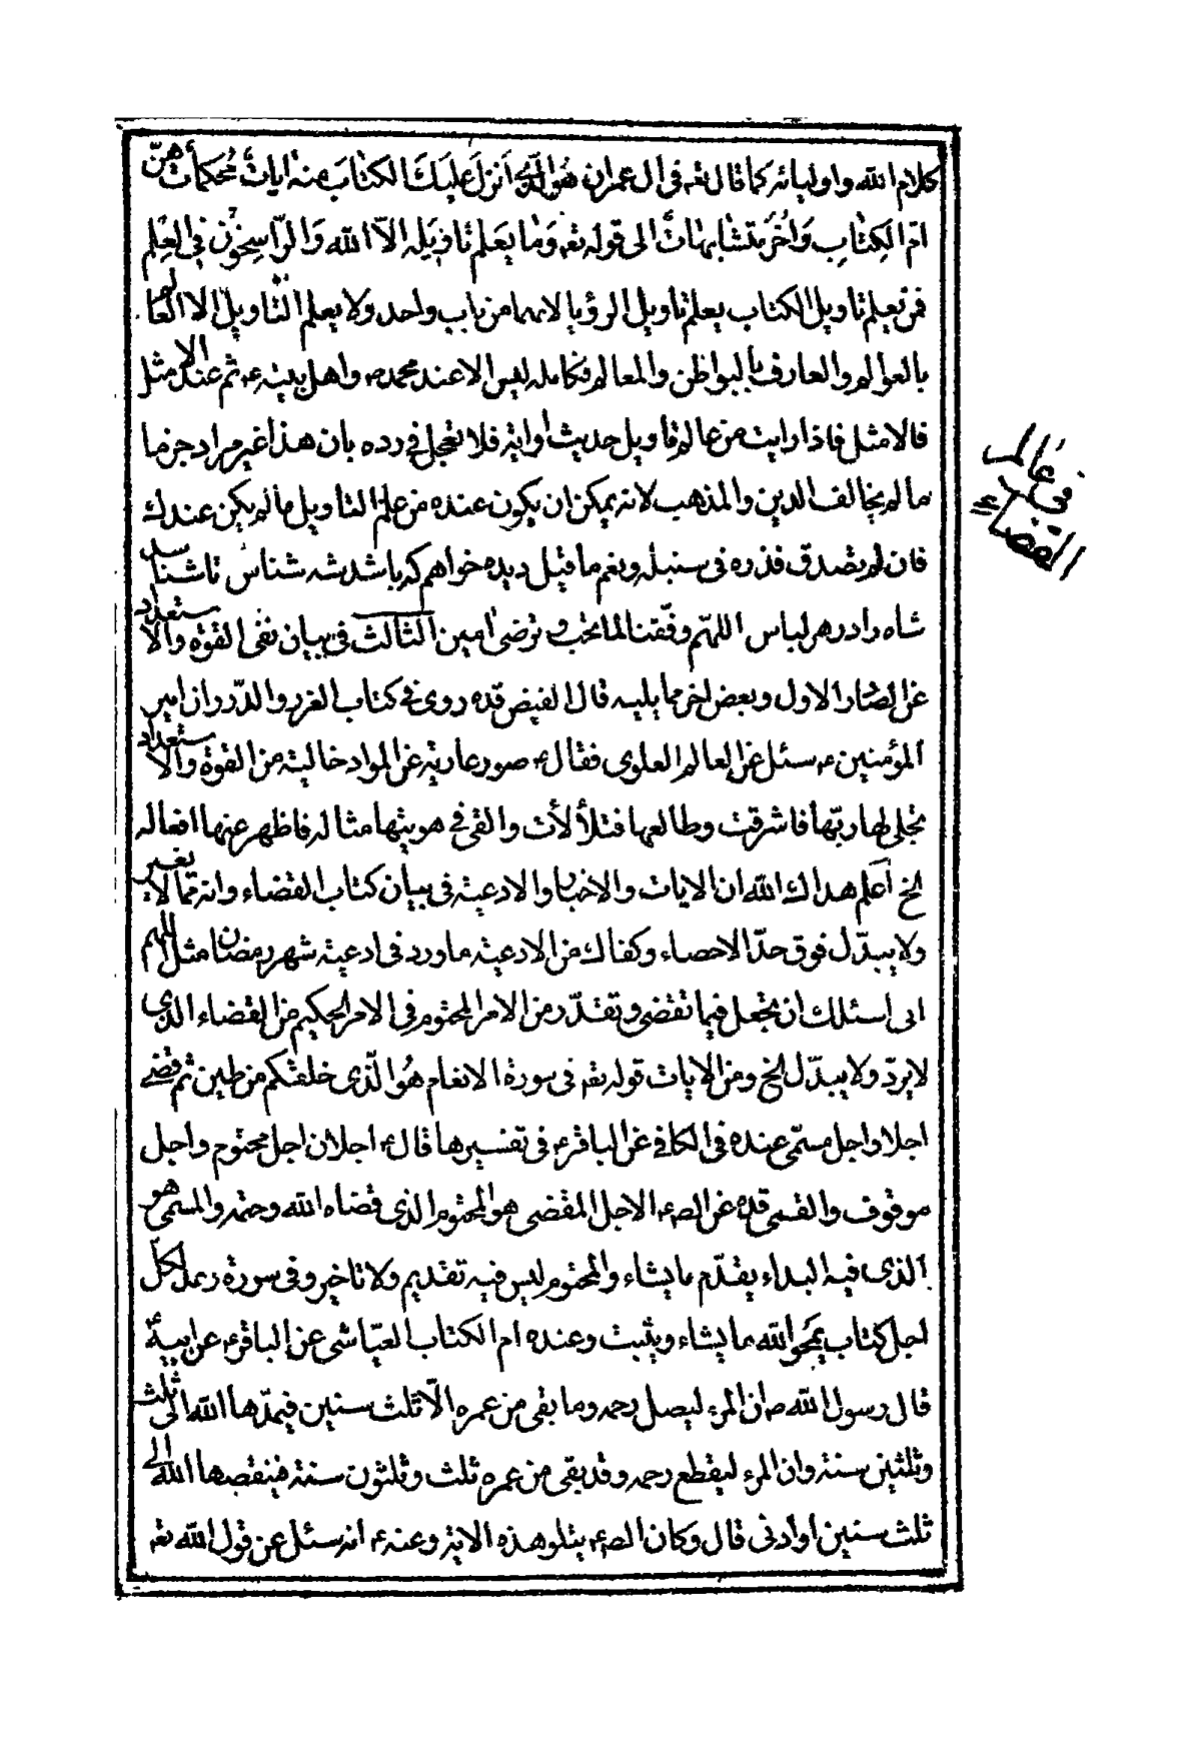 كلام الله واوليائه كما قال تعه فى ال عمران هُوَ الَّذِى اَنْزَلَ عَلَيْكَ الكتٰابَ مِنهُ اياتٌ مُحكَماتٌ هُنّ
امّ الكِتٰابِ وَاُخَرُ متشابهاتٌ الى قوله تعه وَمٰا يَعلم تاويله الاّ الله وَالرّاسِخُون فى العِلم
فمن يعلم تاويل الكتاب يعلم تاويل الرؤيا لانهما من باب واحد ولا يعلم التاويل الا العالم
بالعوالم والعارف بالبواطن والمعالم فكامله ليس الا عند محمد ص واهل بيته ع ثم عند الامثل
فالامثل فاذا رايت من عالم تاويل حديث او اية فلا تعجل فى رده بان هذا غير مراد جزما
ما لم يخالف الدين والمذهب لانه يمكن ان يكون عنده من علم التاويل ما لم يكن عندك
فان لم تصدق فذره فى سنبله ونعم ما قيل ديده خواهم كه باشد شه شناس تا شناسد
شاه را در هر لباس اللهمّ وفّقنا لما تحب وترضى امين الثالث فى بيان نفى القوة والاستعداد
عن الصادر الاول وبعض اخر مما يليه قال الفيض قده روى فى كتاب الغرر والدّرر ان امير
المؤمنين ع سئل عن العالم العلوى فقال ع صور عارية عن المواد خالية من القوة والاستعداد
تجلى لها ربّها فاشرقت وطالعها فتلألأت والقى فى هويتها مثاله فاظهر عنها افعاله
الخ اَعلم هداك الله ان الايات والاخبار والادعية فى بيان كتاب القضاء وانه مما لا يغير
ولا يبدّل فوق حدّ الاحصاء وكفاك من الادعية ما ورد فى ادعية شهر رمضان مثل اللهم
انى اسئلك ان تجعل فيما تقضى وتقدّر من الامر المحتوم فى الامر الحكيم من القضاء الذى
لا يردّ ولا يبدّل الخ ومن الايات قوله تعه فى سورة الانعام هُو الّذى خلقكم من طين ثم قضى
اجلا واجل مسمّى عنده فى الكافى عن الباقر ع فى تفسيرها قال ع اجلان اجل محتوم واجل
موقوف والقمى قده عن الص ع الاجل المقضى هو المحتوم الذى قضاه الله وحتمه والمسمى هو
الذى فيه البداء يقدّم ما يشاء والمحتوم ليس فيه تقديم ولا تاخير وفى سورة رعد لكلّ
اجل كتاب يمحو الله ما يشاء ويثبت وعنده ام الكتاب العيّاشى عن الباقر ع عن ابيه ع
قال رسول الله ص ان المرء ليصل رحمه وما بقى من عمره الّا ثلث سنين فيمدّها الله الى ثلث
وثلثين سنة وان المرء ليقطع رحمه وقد بقى من عمره ثلث وثلثون سنة فينقصها الله الى
ثلث سنين او ادنى قال وكان الص ع يتلو هذه الاية وعنه ع انه سئل عن قول الله تعه
فى عالم
القضاء